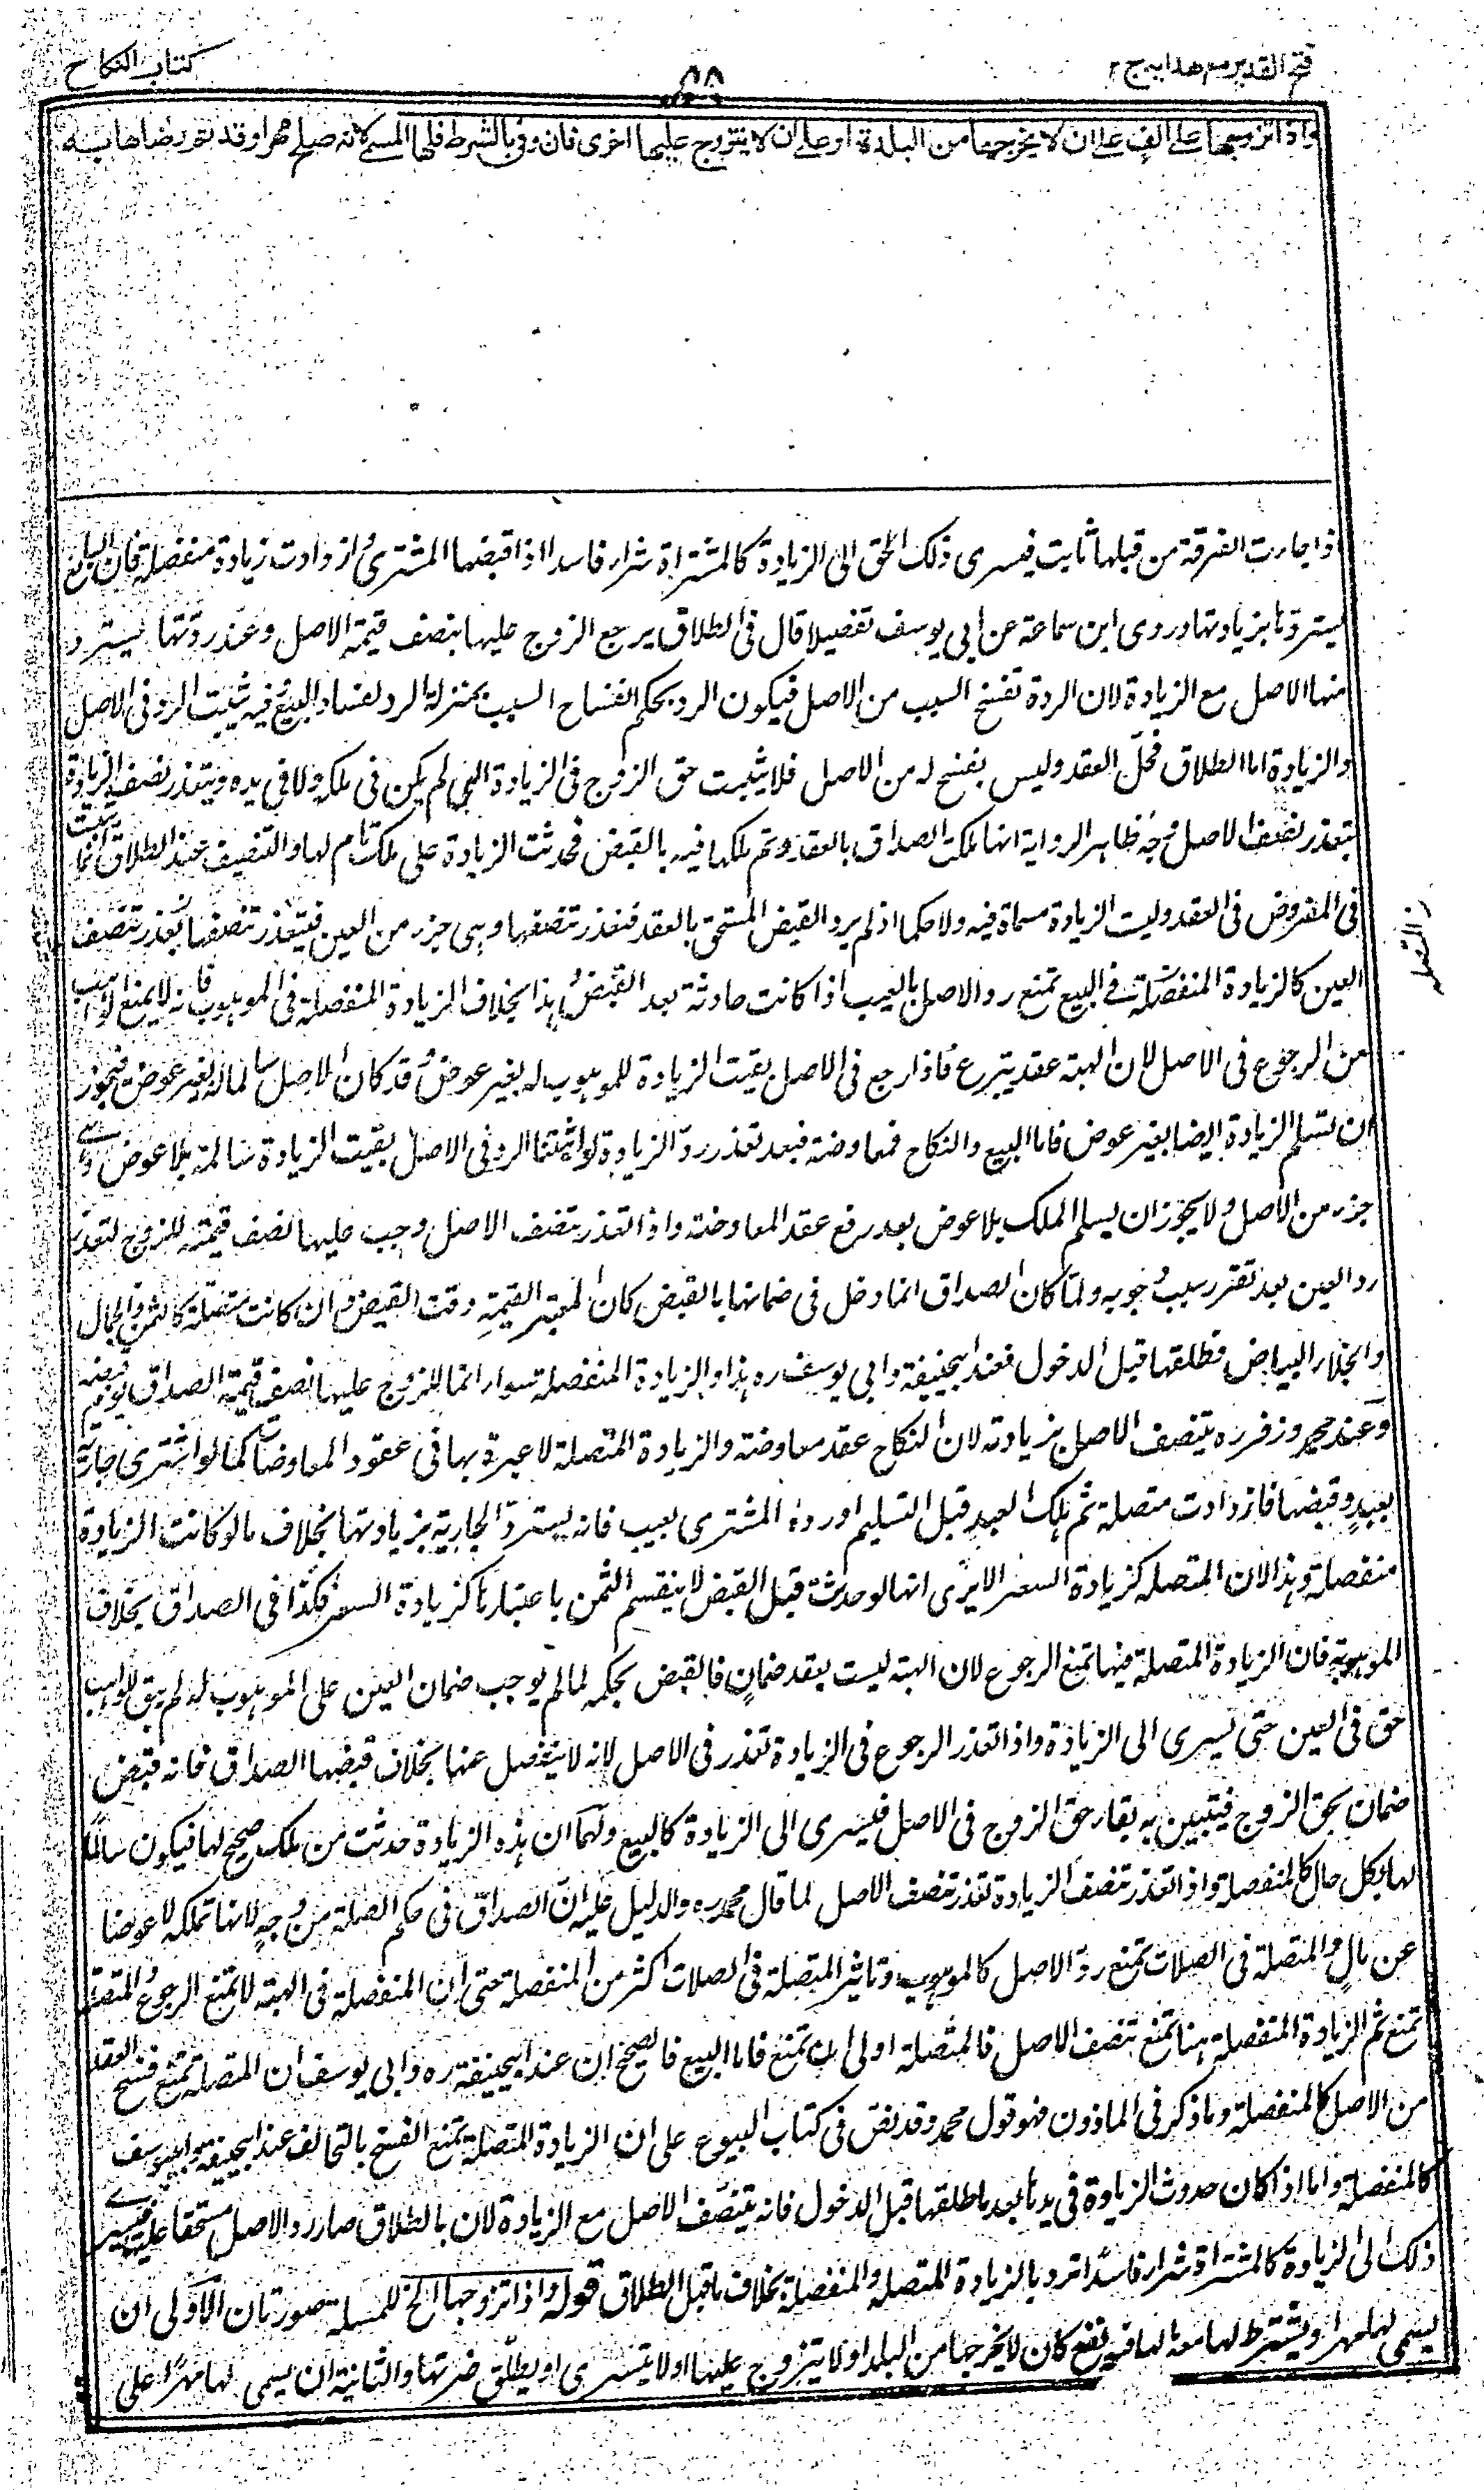 فتح القدير مع هدايه ج ٢
كتاب النكاح
واذا تزوجها على الف على ان لا يخرجها من البلدة او على ان لا يتزوج عليها اخرى فان وفى بالشرط فلها المسمى لانه صلح مهرا وقد تم رضاها به
اذا جاءت الفرقة من قبلها ثابت فيسرى ذلك الحق الى الزيادة كالمشتراة شراء فاسدا اذا قبضها المشترى وازدادت زيادة منفصلة فان البائع
يستردها بزيادتها وروى ابن سماعة عن ابي يوسف تفصيلا قال فى الطلاق يرجع الزوج عليها بنصف قيمة الاصل وعند ردتها يسترد
منها الاصل مع الزيادة لان الردة تفسخ السبب من الاصل فيكون الرد بحكم انفساخ السبب بمنزلة الرد لفساد البيع وفيه يثبت الرد فى الاصل
والزيادة اما الطلاق فحل العقد وليس بفسخ له من الاصل فلا يثبت حق الزوج فى الزيادة التي لم يكن فى ملكه ولا فى يده ويتعذر نصف الزيادة
يتعذر نصف الاصل وجه ظاهر الرواية انها ملكت الصداق بالعقد وتم ملكها فيه بالقبض فحدثت الزيادة على ملك تام لها والتنصيف عند الطلاق انما يثبت
فى المفروض فى العقد وليست الزيادة مسماة فيه ولا حكما اذ لم يرد القبض المستحق بالعقد فتعذر تنصفها وهى جزء من العين فيتعذر تنصفها بتعذر تنصف
العين كالزيادة المنفصلة فى البيع تمنع رد الاصل بالعيب اذا كانت حادثة بعد القبض وهذا بخلاف الزيادة المنفصلة فى الموهوب فانه لا يمنع الواهب
من الرجوع فى الاصل لان الهبة عقد يتبرع فاذا رجع فى الاصل بقيت الزيادة للموهوب له بغير عوض وقد كان الاصل سالما له بغير عوض فيجوز
ان تسلم الزيادة ايضا بغير عوض فاما البيع والنكاح فمعاوضة فبعد تعذر رد الزيادة لو اثبتنا الرد فى الاصل بقيت الزيادة سالمة بلا عوض وهي
جزء من الاصل ولا يجوز ان يسلم الملك بلا عوض بعد رفع عقد المعاوضة واذا تعذر تنصف الاصل وجب عليها نصف قيمته للزوج لتعذر
رد العين بعد تقرر سبب وجوبه ولما كان الصداق انما دخل فى ضمانها بالقبض كان المعتبر القيمة وقت القبض وان كانت متصلة كالسمن والجمال
وانجلاء البياض فطلقها قبل الدخول فعند ابيحنيفة وابي يوسف ره هذا والزيادة المنفصلة سواء انما للزوج عليها نصف قيمة الصداق يوم قبضه
وعند محمد وزفر ره يتنصف الاصل بزيادته لان النكاح عقد معاوضة والزيادة المتصلة لا عبرة بها فى عقود المعاوضات كما لو اشترى جارية
بعبد وقبضها فازدادت متصلة ثم هلك العبد قبل التسليم او رده المشترى بعيب فانه يسترد الجارية بزيادتها بخلاف ما لو كانت الزيادة
منفصلة وهذا لان المتصلة كزيادة السعر الا يرى انها لو حدثت قبل القبض لا ينقسم الثمن باعتبارها كزيادة السعر فكذا فى الصداق بخلاف
الموهوبة فان الزيادة المتصلة فيها تمنع الرجوع لان الهبة ليست بعقد ضمان فالقبض بحكمه لما لم يوجب ضمان العين على الموهوب له لم يبق للواهب
حق فى العين حتى يسرى الى الزيادة واذا تعذر الرجوع فى الزيادة تعذر فى الاصل لانه لا ينفصل عنها بخلاف قبضها الصداق فانه قبض
ضمان بحق الزوج فيتبين به بقاء حق الزوج فى الاصل فيسرى الى الزيادة كالبيع ولهما ان هذه الزيادة حدثت من ملك صحيح لها فيكون سالما
لها بكل حال كالمنفصلة واذا تعذر تنصف الزيادة تعذر تنصف الاصل لما قال محمد ره والدليل عليه ان الصداق فى حكم الصلة من وجه لانها تملكه لا عوضا
عن مال والمتصلة فى الصلات تمنع رد الاصل كالموهوب وتاثير المتصلة فى الصلات اكثر من المنفصلة حتى ان المنفصلة فى الهبة لا تمنع الرجوع والمتصلة
تمنع ثم الزيادة المنفصلة هنا تمنع تنصف الاصل فالمتصلة اولى ان تمنع فاما البيع فالصحيح ان عند ابيحنيفة ره وابي يوسف ان المتصلة تمنع فسخ العقد
من الاصل كالمنفصلة وما ذكر فى الماذون فهو قول محمد وقد نص فى كتاب البيوع على ان الزيادة المتصلة تمنع الفسخ بالتحالف عند ابيحنيفة وابيوسف
كالمنفصلة واما اذا كان حدوث الزيادة فى يدها بعد ما طلقها قبل الدخول فانه يتنصف الاصل مع الزيادة لان بالطلاق صار رد الاصل مستحقا عليها فيسرى
ذلك الى الزيادة كالمشتراة شراء فاسدا ترد بالزيادة المتصلة والمنفصلة بخلاف ما قبل الطلاق قوله واذا تزوجها الخ للمسئلة صورتان الاولى ان
يسمى لها مهرا ويشترط لها معه ما لها فيه نفع كان لا يخرجها من البلد او لا يتزوج عليها او لا يتسرى او يطلق ضرتها والثانية ان يسمى لها مهرا على